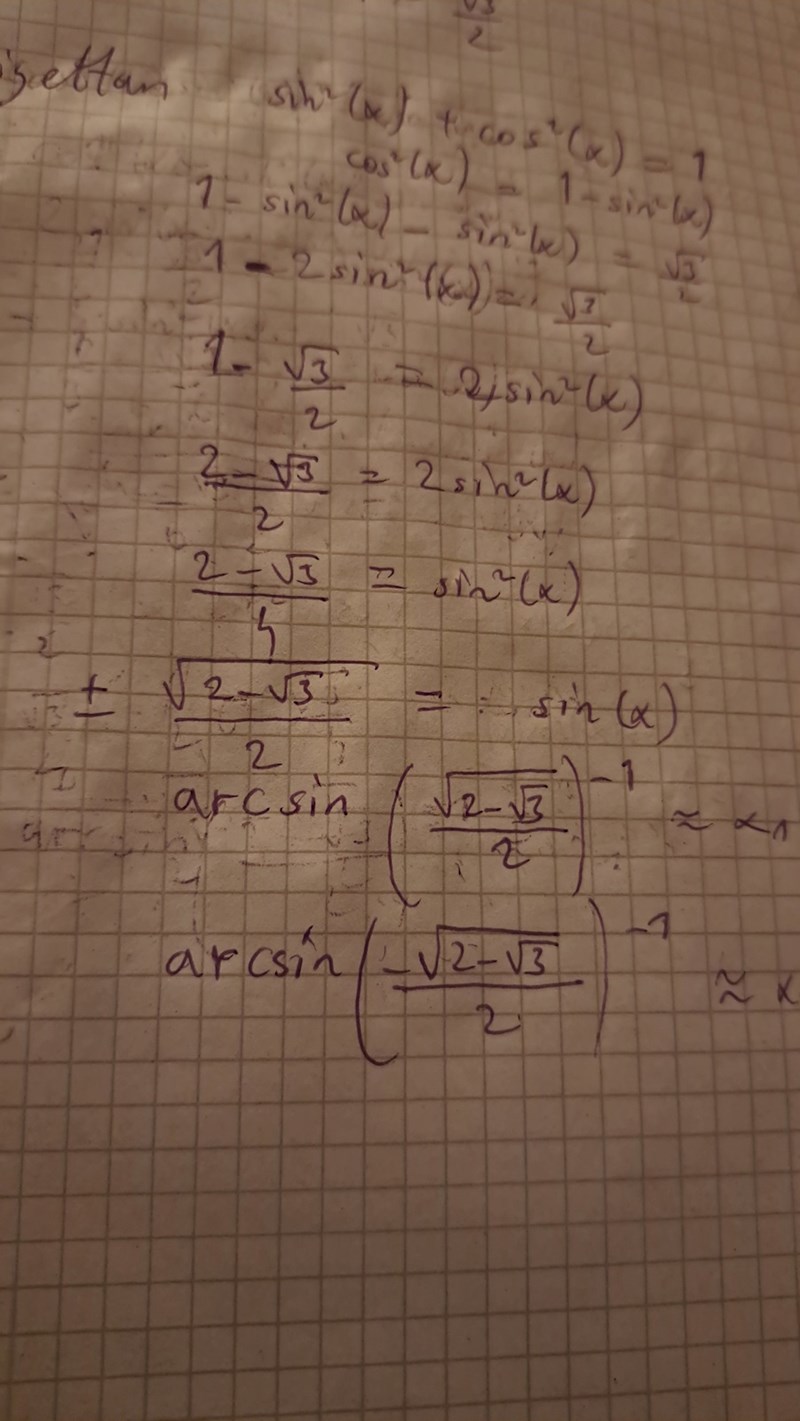 √3/2
sin²(x) + cos²(x) = 1
cos²(x) = 1 - sin²(x)
1 - sin²(x) - sin²(x) = √3/2
1 - 2sin²(x) = √3/2
1 - √3/2 = 2 sin²(x)
(2-√3)/2 = 2sin²(x)
(2-√3)/4 = sin²(x)
± √(2-√3)/2 = sin(x)
arcsin (√(2-√3)/2)⁻¹ ≈ x₁
arcsin (-√(2-√3)/2)⁻¹ ≈ x